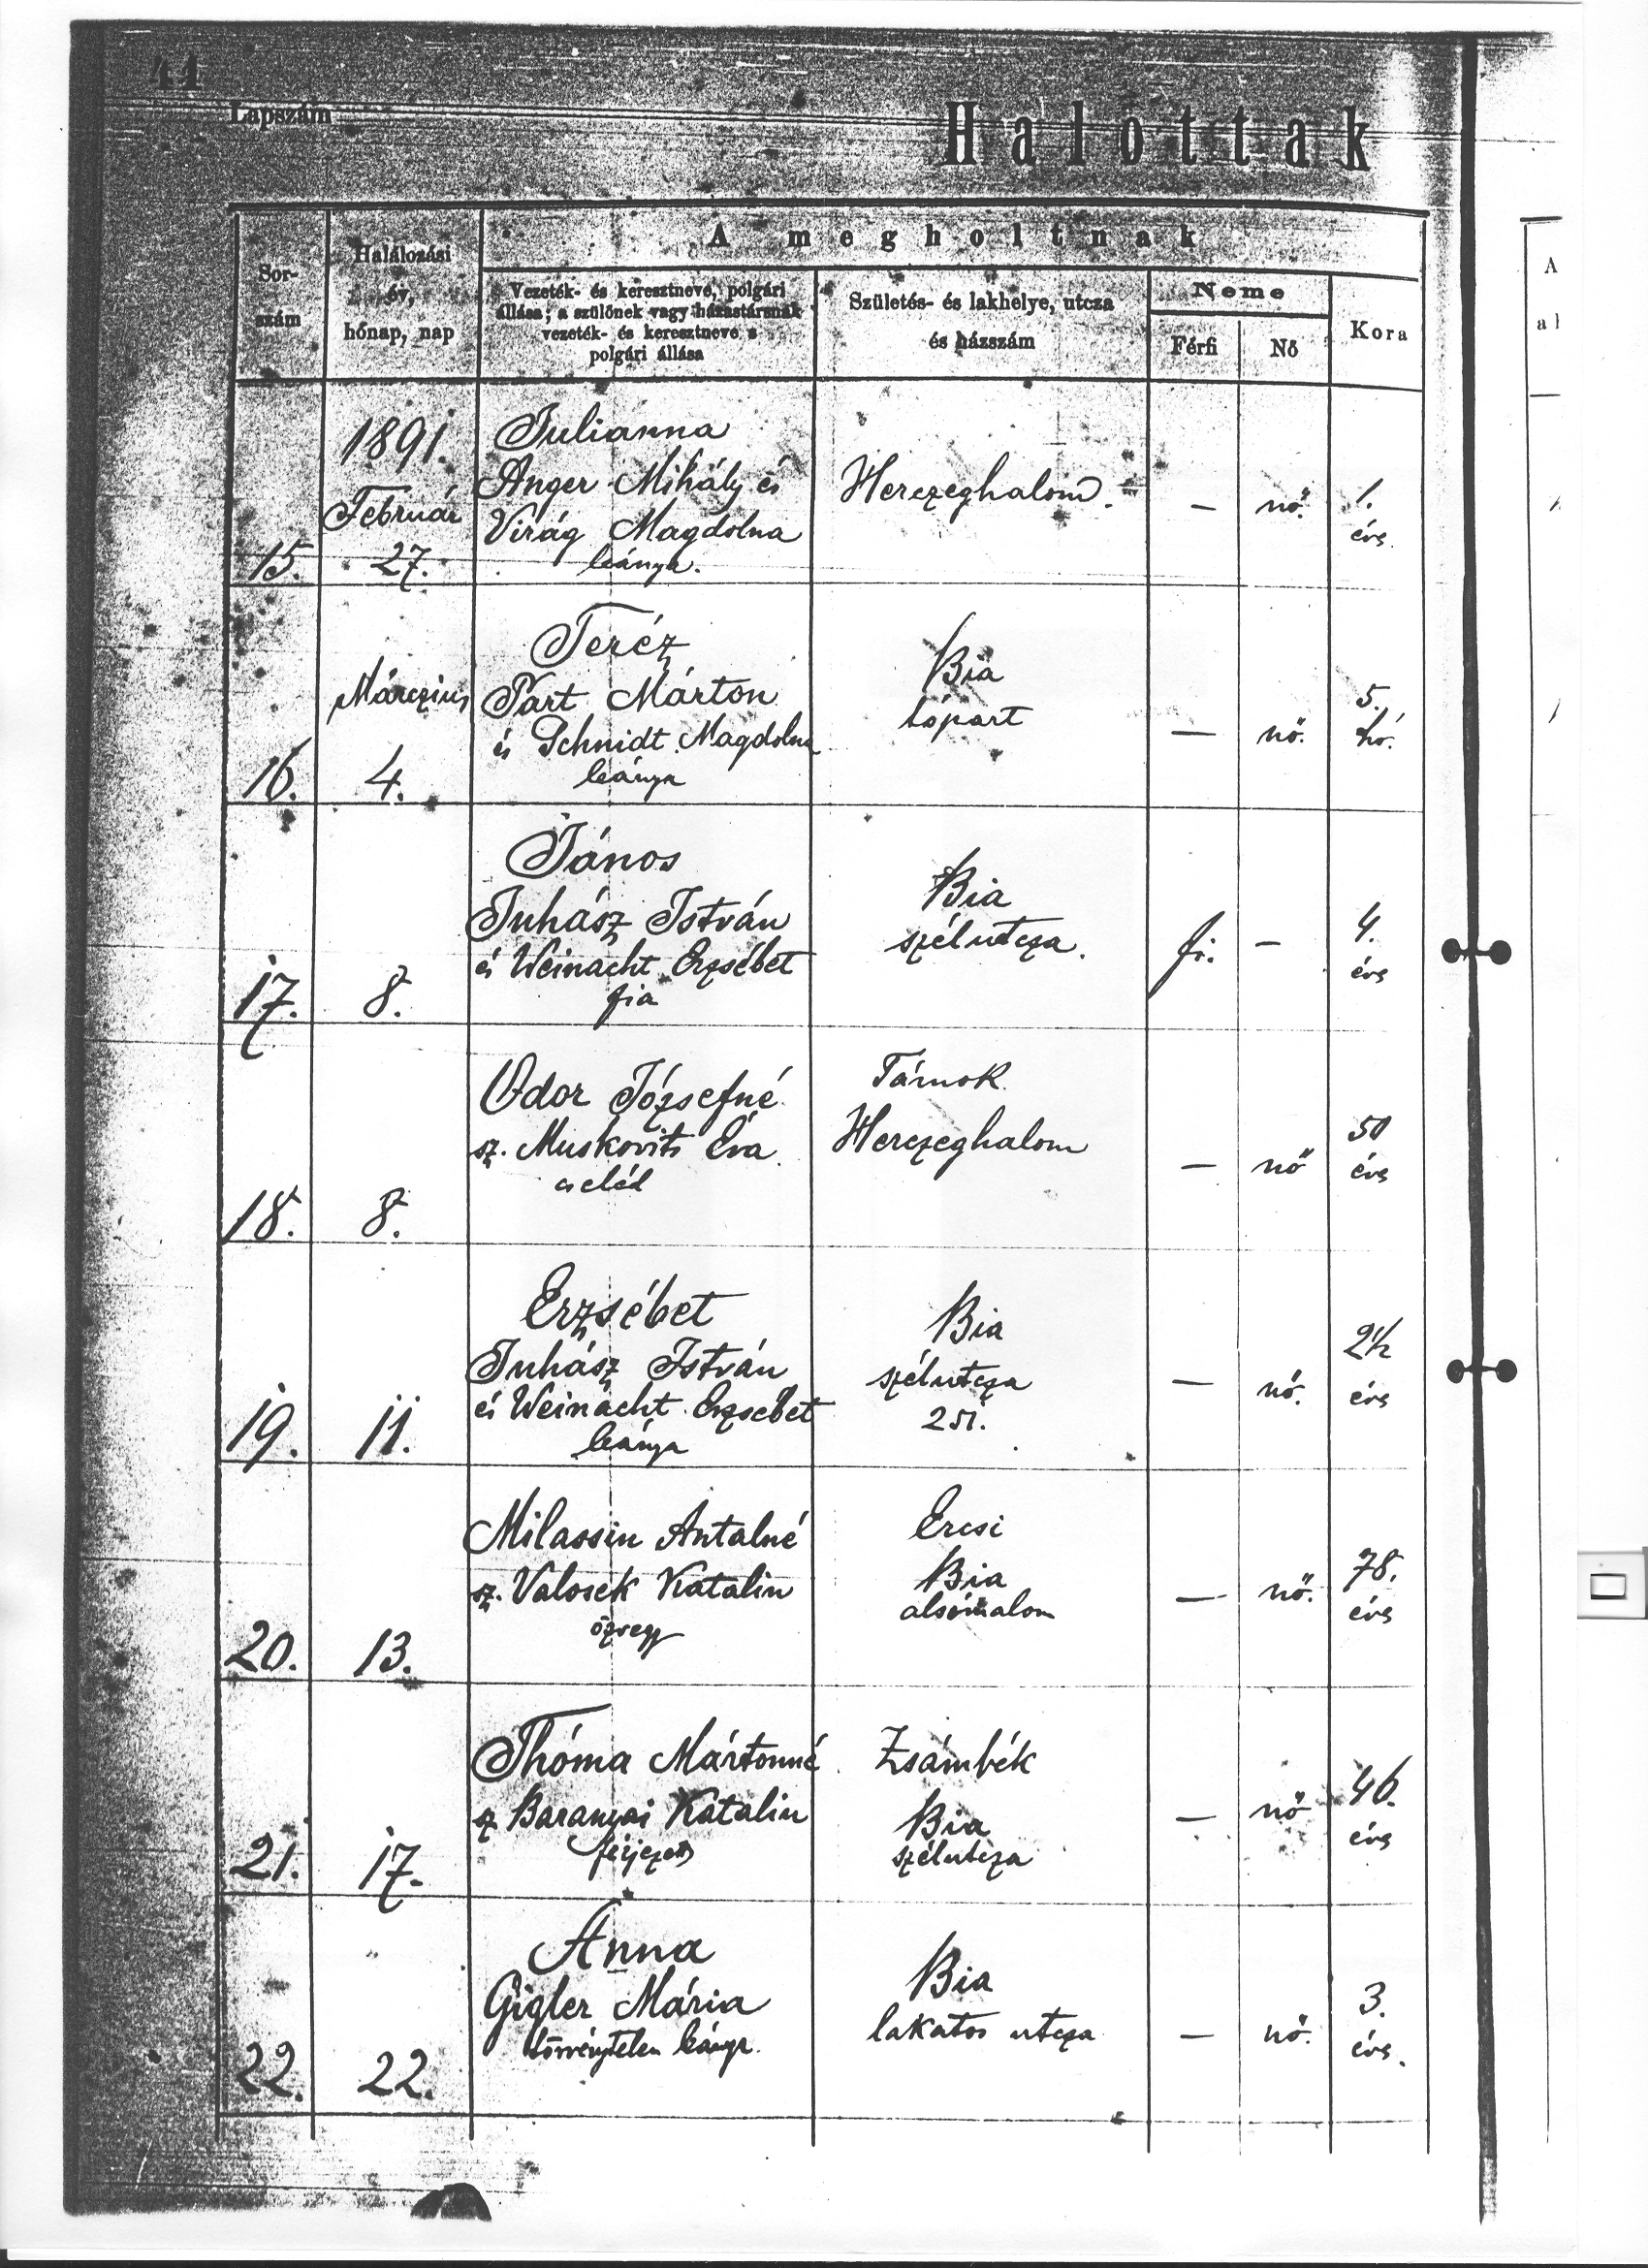 44
Lapszám
Halottak
Sor-
szám
Halálozási
év,
hónap, nap
A megholtnak
Vezeték- és keresztneve, polgári
állása; a szülőnek vagy házastársnak
vezeték- és keresztneve s
polgári állása
Születés- és lakhelye, utcza
és házszám
Neme
Férfi
Nő
Kora
15.
1891.
Február
27.
Julianna
Anger Mihály és
Virág Magdolna
leánya.
Herczeghalom.
—
nő.
1.
éves
16.
Márczius
4.
Teréz
Part Márton
és Schmidt Magdolna
leánya
Bia
tópart
—
nő.
5.
hó.
17.
8.
János
Juhász István
és Weinacht Erzsébet
fia
Bia
szélutcza.
fi.
—
4.
éves
18.
8.
Odor Józsefné
sz. Muskovits Éva.
cseléd
Tárnok
Herczeghalom
—
nő
50
éves
19.
11.
Erzsébet
Juhász István
és Weinacht Erzsébet
leánya
Bia
szélutcza
251.
—
nő.
2½
éves
20.
13.
Milassin Antalné
sz. Valosek Katalin
özvegy
Ercsi
Bia
alsómalom
—
nő.
78.
éves
21.
17.
Thóma Mártonné
sz Baranyai Katalin
férjezett
Zsámbék
Bia
szélutcza
—
nő
46.
éves
22.
22.
Anna
Gigler Mária
törvénytelen leánya.
Bia
lakatos utcza
—
nő.
3.
éves.
A
al